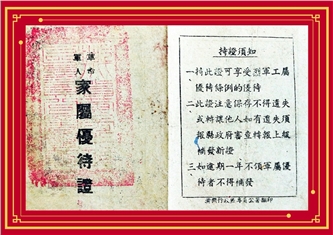 革命
軍人
家屬優待證
持證須知
一持此證可享受烈軍工屬
優待條例的優待
二此證注意保存不得遺失
或轉讓他人如有遺失須
報縣政府審查轉報上級
補發新證
三如逾期一年不領軍屬優
待者不得補發